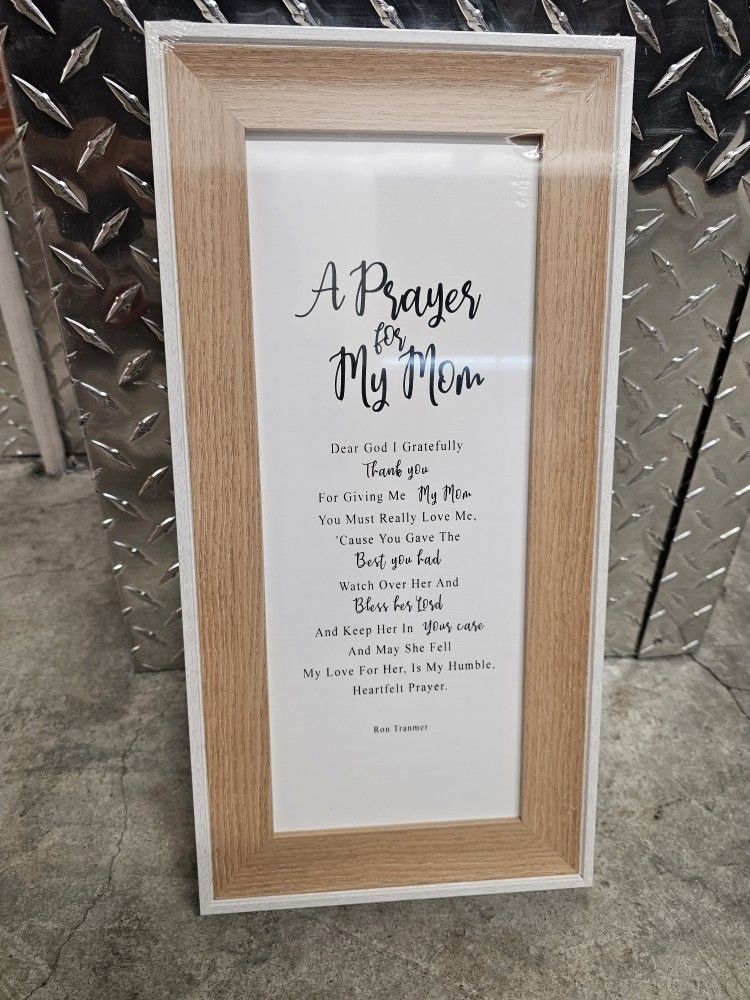 A Prayer
for
My Mom
Dear God I Gratefully
Thank you
For Giving Me My Mom
You Must Really Love Me,
'Cause You Gave The
Best you had
Watch Over Her And
Bless her Lord
And Keep Her In Your care
And May She Fell
My Love For Her, Is My Humble,
Heartfelt Prayer.
Ron Tranmer